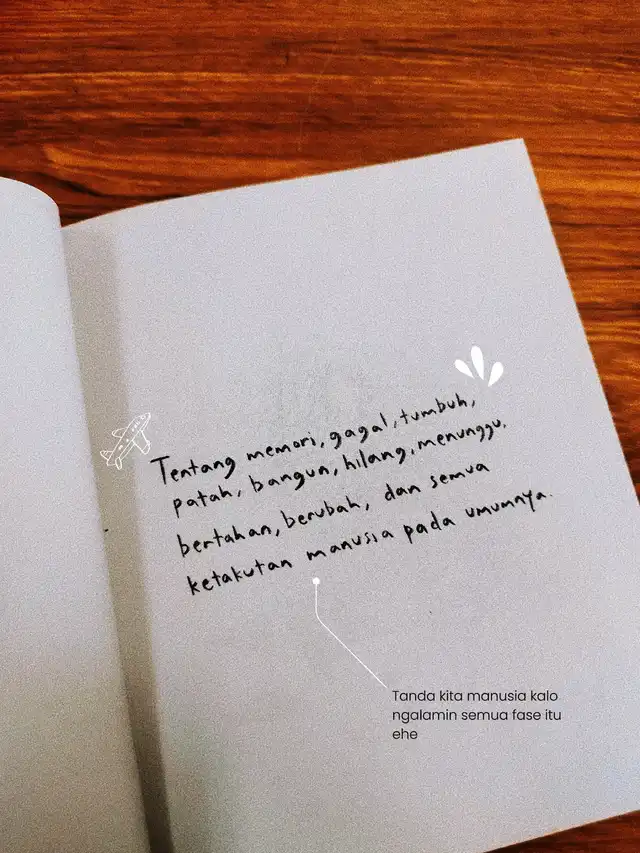 Tentang memori, gagal, tumbuh,
patah, bangun, hilang, menunggu,
bertahan, berubah, dan semua
ketakutan manusia pada umumnya.
Tanda kita manusia kalo
ngalamin semua fase itu
ehe